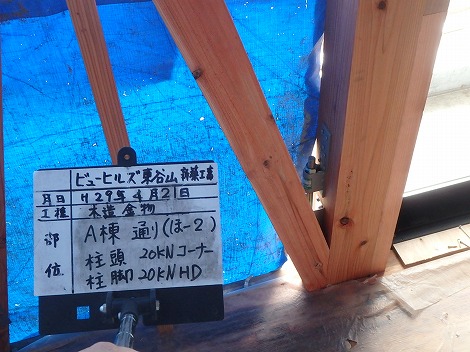 ビューヒルズ東谷山 新築工事
月日 H29年4月21日
工種 木造金物
部位 A棟 通り(ほ-2)
柱頭 20kNコーナー
柱脚 20kN HD